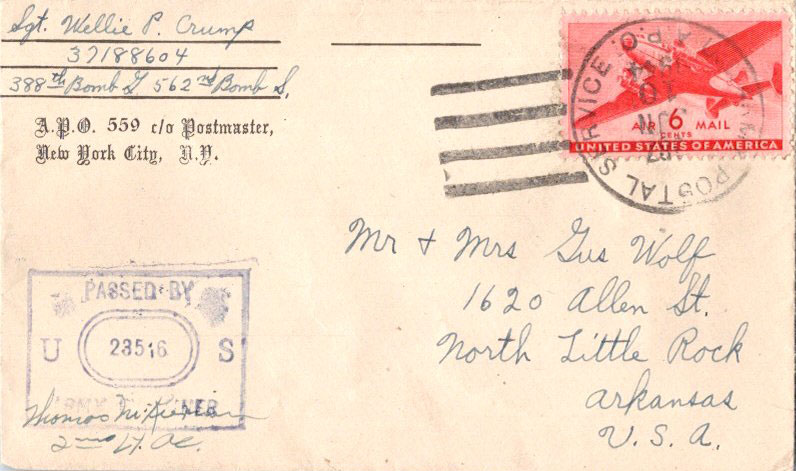 Sgt. Wellie P. Crump
37188604
388th Bomb G 562nd Bomb S.
A.P.O. 559 c/o Postmaster,
New York City, N.Y.
POSTAL SERVICE
A.P.O.
JUN
10
AIR 6 MAIL
CENTS
UNITED STATES OF AMERICA
Mr + Mrs Gus Wolf
1620 Allen St.
North Little Rock
Arkansas
U.S.A.
PASSED BY
U 28516 S
ARMY NER
Thomas
2nd Lt. AC.